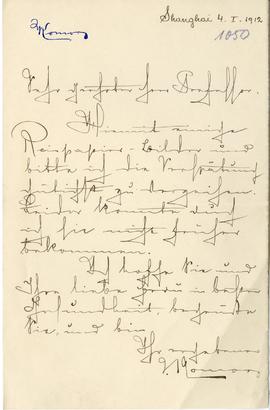 Shanghai 4. I. 1912
Komor
1050
Sehr geehrter Herr Professor.
Hiemit einige
Reispapier-Bilder und
bitte ich die Verspätung
gütigst zu verzeihen.
Leider konnte auch
ich sie nicht früher
bekommen.
Ich hoffe Sie und
Ihre liebe Frau in bester
Gesundheit, begrüße
Sie, und bin
Ihr ergebener
Komor